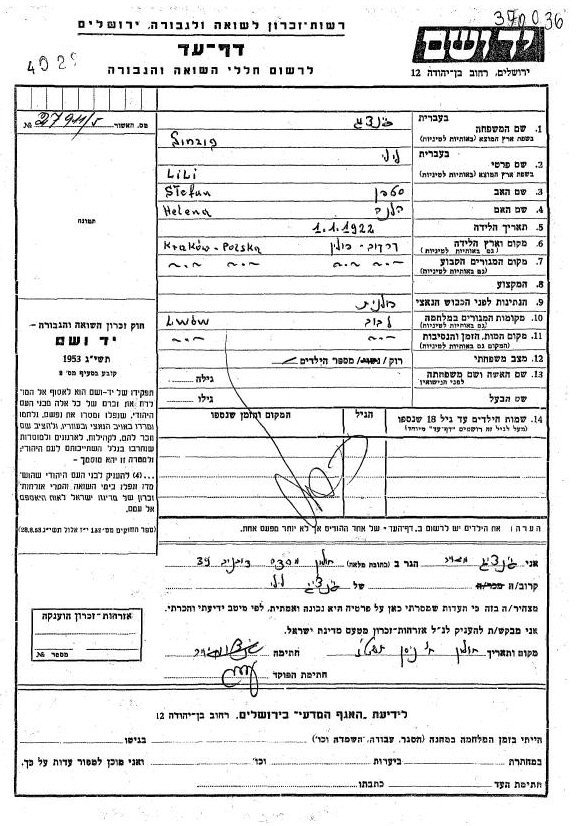 370036
יד ושם
ירושלים, רחוב בן-יהודה 12
רשות-זכרון לשואה ולגבורה, ירושלים
דף-עד
לרשום חללי השואה והגבורה
מס. האשור
№
תמונה
1. שם המשפחה בעברית
בשפת ארץ המוצא (באותיות לטיניות)
2. שם פרטי בעברית לילי
בשפת ארץ המוצא (באותיות לטיניות) LiLi
3. שם האב סטפן Stefan
4. שם האם הלנה Helena
5. תאריך הלידה 1.1.1922
6. מקום וארץ הלידה קרקוב - פולין Kraków-Polska
(גם באותיות לטיניות)
7. מקום המגורים הקבוע
(גם באותיות לטיניות)
8. המקצוע
9. הנתינות לפני הכבוש הנאצי פולנית
10. מקומות המגורים במלחמה לבוב Lwów
(גם באותיות לטיניות)
11. מקום המות, הזמן והנסיבות
(המקום גם באותיות לטיניות)
12. מצב משפחתי רוק/נשוי/ מספר הילדים
13. שם האשה ושם משפחתה גילה
לפני הנישואין
שם הבעל גילו
14. שמות הילדים עד גיל 18 שנספו הגיל המקום והזמן שנספו
(מעל לגיל זה רושמים "דף-עד" מיוחד)
חוק זכרון השואה והגבורה –
יד ושם
תשי"ג 1953
קובע בסעיף מס' 2
תפקידו של יד-ושם הוא לאסוף אל המו־
לדת את זכרם של כל אלה מבני העם
היהודי, שנפלו ומסרו את נפשם, נלחמו
ומרדו באויב הנאצי ובעוזריו, ולהציב שם
וזכר להם, לקהילות, לארגונים ולמוסדות
שנחרבו בגלל השתייכותם לעם היהודי;
ולמטרה זו יהא מוסמך –
...(4) להעניק לבני העם היהודי שהוש־
מדו ונפלו בימי השואה והמרי אזרחות־
זכרון של מדינת ישראל לאות היאספם
אל עמם.
(ספר החוקים מס' 132 י"ז אלול תשי"ג 28.8.53)
הערה: את הילדים יש לרשום ב"דף-העד" של אחד ההורים אך לא יותר מפעם אחת.
אני מאיר הגר ב (כתובת מלאה) חולון
קרוב/ה מכר/ה של לילי
מצהיר/ה בזה כי העדות שמסרתי כאן על פרטיה היא נכונה ואמתית, לפי מיטב ידיעתי והכרתי.
אני מבקש/ת להעניק לנ"ל אזרחות-זכרון מטעם מדינת ישראל.
מקום ותאריך חולון ניסן חתימה
חתימת הפוקד
אזרחות-זכרון הוענקה
מספר №
לידיעת "האגף המדעי" בירושלים, רחוב בן-יהודה 12
הייתי בזמן המלחמה במחנה (הסגר, עבודה, השמדה וכו') בגיטו
במחתרת ביערות וכו' ואני מוכן למסור עדות על כך.
חתימת העד כתבתו